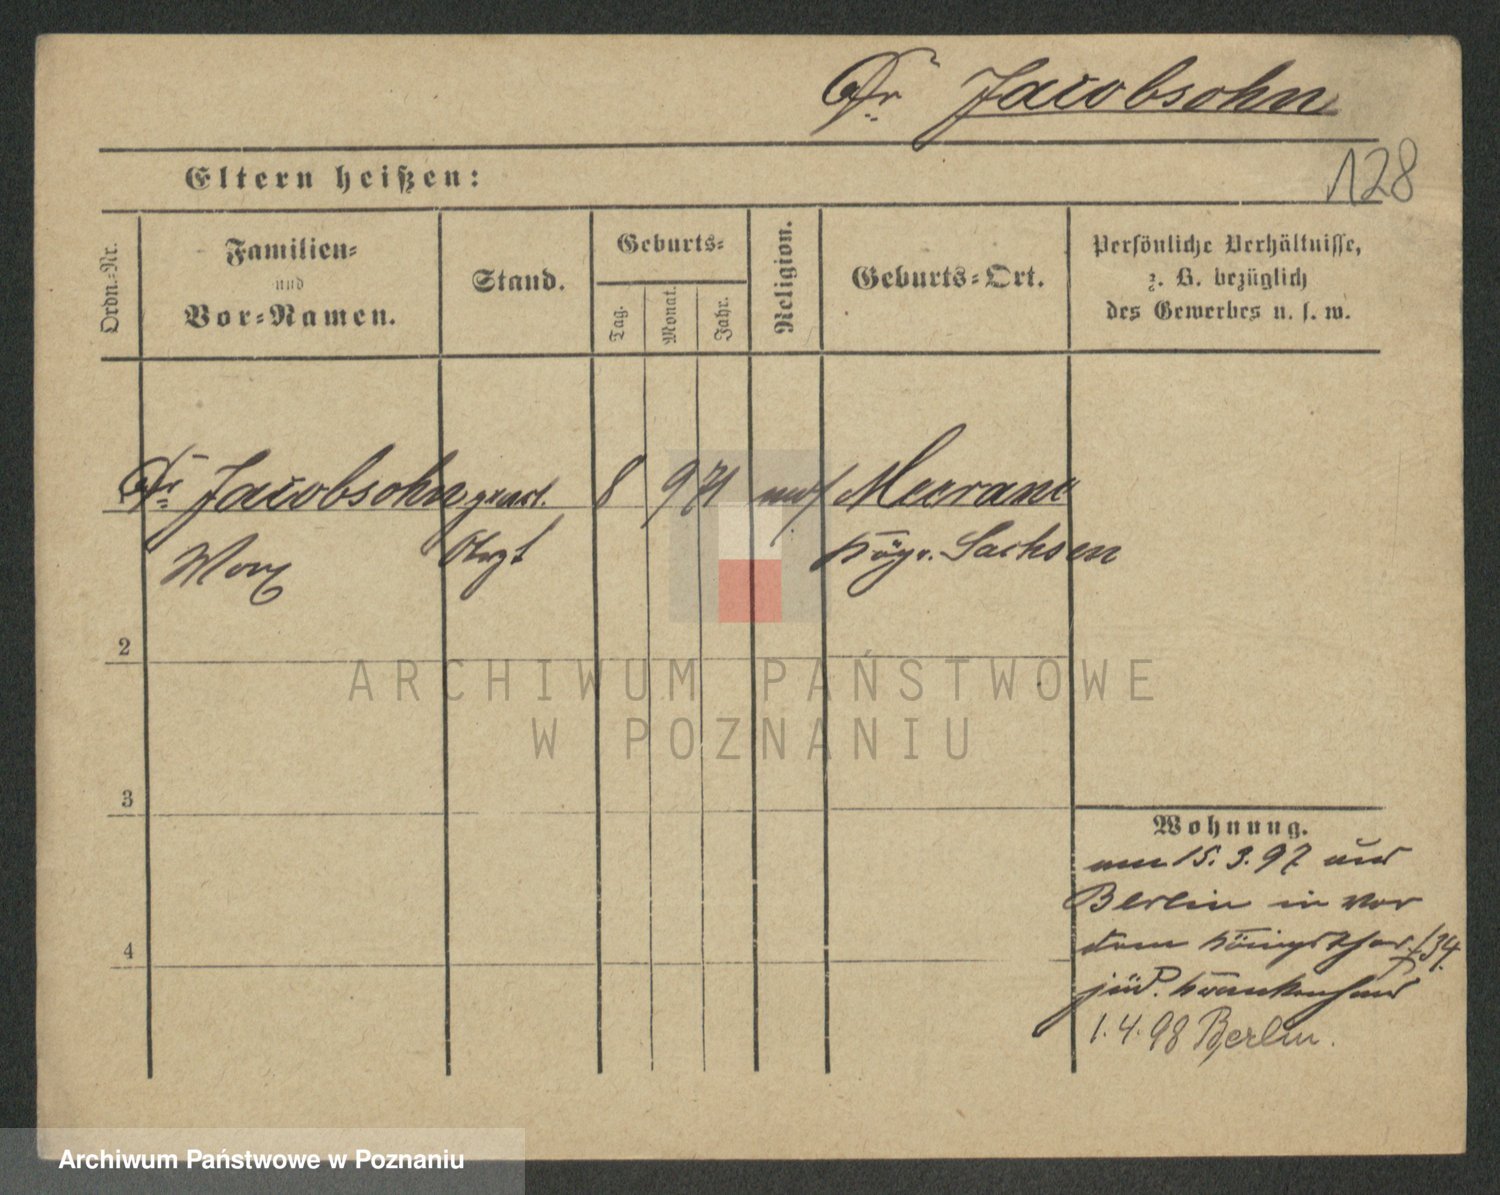 Dr Jacobsohn
128
Eltern heißen:
Ordn.-Nr.
Familien-
und
Vor-Namen.
Stand.
Geburts-
Tag.
Monat.
Jahr.
Religion.
Geburts-Ort.
Persönliche Verhältnisse,
z. B. bezüglich
des Gewerbes u. s. w.
Dr Jacobsohn pract. 8 9 71 mos Meerane
Max Arzt Kögr. Sachsen
2
3
4
Wohnung.
15. 3. 97 aus
Berlin in vor
dem Königsthor 134.
jüd. Krankenhaus
1. 4. 98 Berlin.
ARCHIWUM PAŃSTWOWE
W POZNANIU
Archiwum Państwowe w Poznaniu